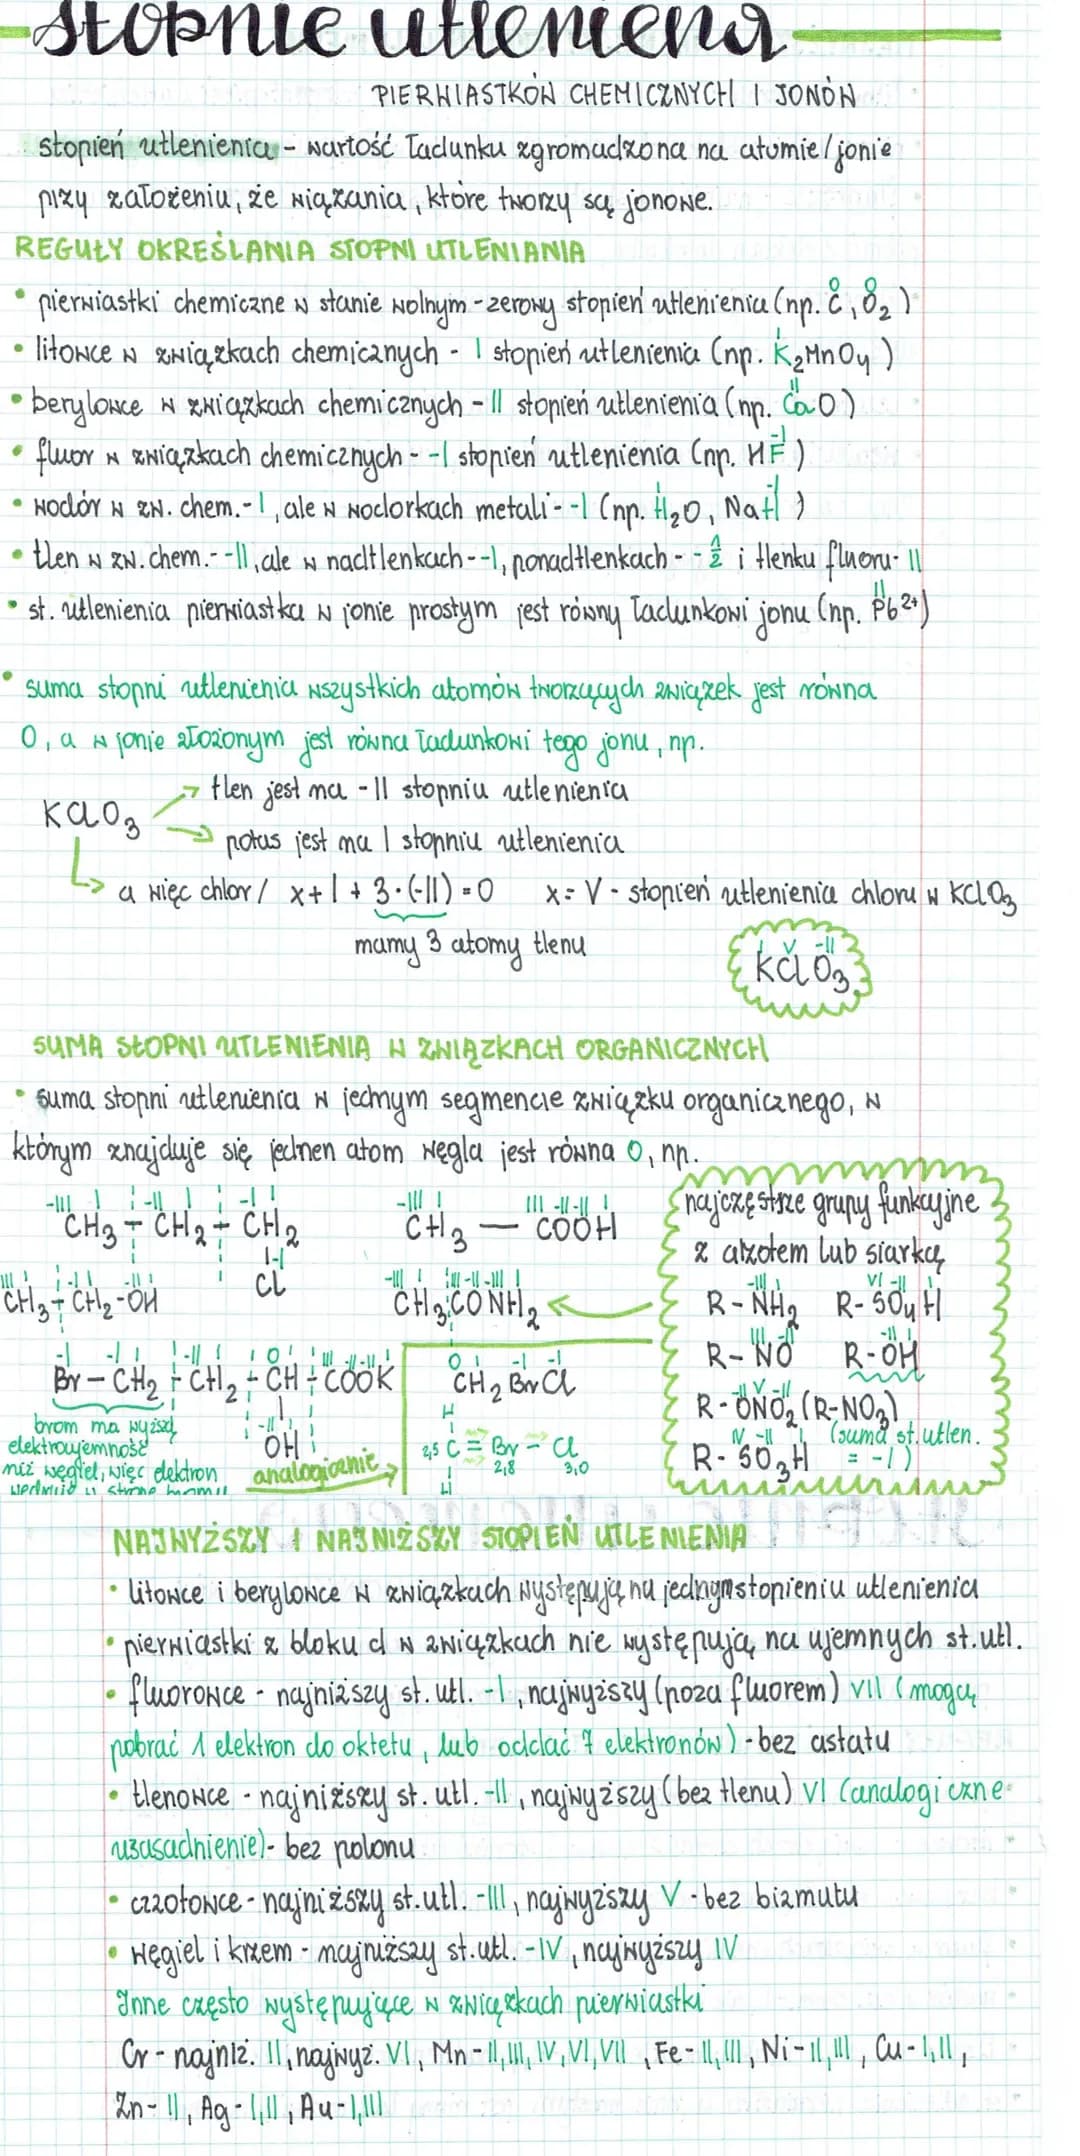 stopnie utlenienia
PIERWIASTKÓW CHEMICZNYCH I JONÓW
stopień utlenienia - wartość ładunku zgromadzona na atomie/jonie
przy założeniu, że wiązania, które tworzy są jonowe.
REGUŁY OKREŚLANIA STOPNI UTLENIANIA
• pierwiastki chemiczne w stanie wolnym - zerowy stopień utlenienia (np. C, O₂)
0 0
• litowce w związkach chemicznych - I stopień utlenienia (np. K₂MnO₄)
I
• berylowce w związkach chemicznych - II stopień utlenienia (np. CaO)
II
• fluor w związkach chemicznych - -I stopień utlenienia (np. HF)
-I
• wodór w zw. chem. - I, ale w wodorkach metali - -I (np. H₂O, NaH)
I -I
• tlen w zw. chem. - -II, ale w nadtlenkach - -I, ponadtlenkach - -1/2 i tlenku fluoru - II
• st. utlenienia pierwiastka w jonie prostym jest równy ładunkowi jonu (np. Pb²⁺)
II
• suma stopni utlenienia wszystkich atomów tworzących związek jest równa
0, a w jonie złożonym jest równa ładunkowi tego jonu, np.
tlen jest na -II stopniu utlenienia
KClO₃
potas jest na I stopniu utlenienia
a więc chlor / x + I + 3·(-II) = 0 x = V - stopień utlenienia chloru w KClO₃
mamy 3 atomy tlenu
I V -II
KClO₃
SUMA STOPNI UTLENIENIA W ZWIĄZKACH ORGANICZNYCH
• suma stopni utlenienia w jednym segmencie związku organicznego, w
którym znajduje się jeden atom węgla jest równa 0, np.
-III I -II I -I I
CH₃ - CH₂ - CH₂
-I
Cl
-III I III -II -II I
CH₃ — COOH
-III I -I I -II I
CH₃ - CH₂ - OH
-III I III -II -III I
CH₃CONH₂
-I -I I -II I 0 I III -II -II I
Br - CH₂ - CH₂ - CH - COOK
-II I
OH
brom ma wyższą
elektroujemność
niż węgiel, więc elektron
wędruje w stronę bromu
analogicznie
0 I -I -I
CH₂BrCl
H
2,5 C = Br - Cl
2,8 3,0
H
najczęstsze grupy funkcyjne
z azotem lub siarką
-III I VI -II I
R - NH₂ R - SO₄H
III -II -II I
R - NO R - OH
-II V -II
R - ONO₂ (R-NO₃)
IV -II I (suma st. utlen.
R - SO₃H = -I)
NAJWYŻSZY I NAJNIŻSZY STOPIEŃ UTLENIENIA
• litowce i berylowce w związkach występują na jednym stopieniu utlenienia
• pierwiastki z bloku d w związkach nie występują na ujemnych st. utl.
• fluorowce - najniższy st. utl. -I, najwyższy (poza fluorem) VII (mogą
pobrać 1 elektron do oktetu, lub oddać 7 elektronów) - bez astatu
• tlenowce - najniższy st. utl. -II, najwyższy (bez tlenu) VI (analogiczne
uzasadnienie) - bez polonu
• azotowce - najniższy st. utl. -III, najwyższy V - bez bizmutu
• węgiel i krzem - najniższy st. utl. -IV, najwyższy IV
Inne często występujące w związkach pierwiastki
Cr - najniż. II, najwyż. VI, Mn - II, III, IV, VI, VII, Fe - II, III, Ni - II, III, Cu - I, II,
Zn - II, Ag - I, II, Au - I, III